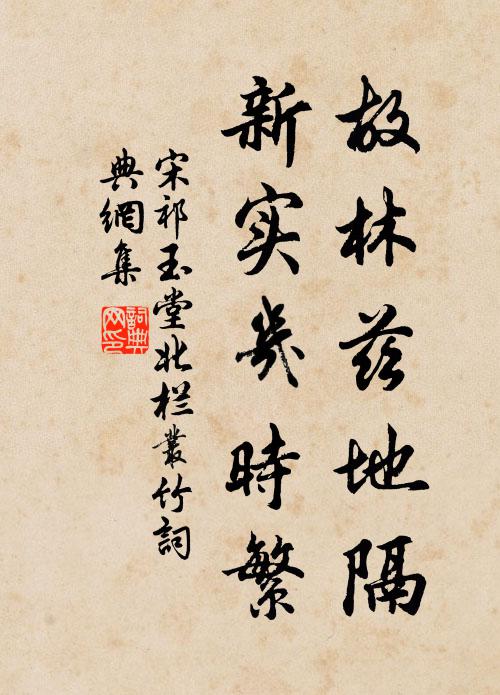 故林茲地隔
新实幾時繁
宋祁玉堂北栏叢竹詞
典網集
詞典网印